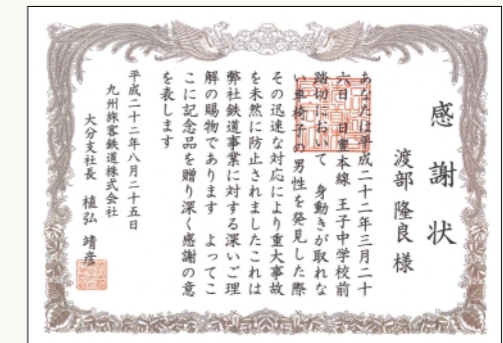 感謝状
渡部 隆良 様
あなたは平成二十二年三月二十
六日 日豊本線 王子中学校前
踏切において 身動きが取れな
い車椅子の男性を発見した際
その迅速な対応により重大事故
を未然に防止されましたこれは
弊社鉄道事業に対する深いご理
解の賜物であります よってこ
こに記念品を贈り深く感謝の意
を表します
平成二十二年八月二十五日
九州旅客鉄道株式会社
大分支社長 植弘 靖彦